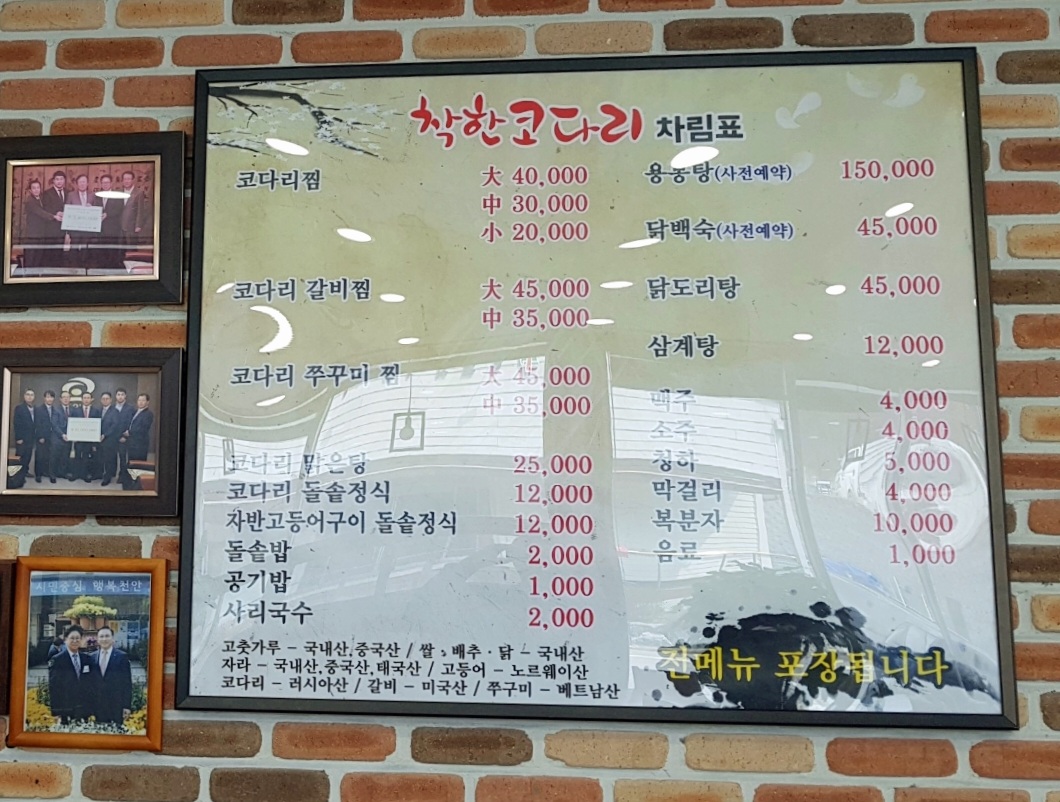 착한코다리 차림표
코다리찜 大 40,000
中 30,000
小 20,000
코다리 갈비찜 大 45,000
中 35,000
코다리 쭈꾸미 찜 大 45,000
中 35,000
코다리 맑은탕 25,000
코다리 돌솥정식 12,000
자반고등어구이 돌솥정식 12,000
돌솥밥 2,000
공기밥 1,000
사리국수 2,000
고춧가루 - 국내산,중국산 / 쌀 · 배추 · 닭 - 국내산
자라 - 국내산,중국산,태국산 / 고등어 - 노르웨이산
코다리 - 러시아산 / 갈비 - 미국산 / 쭈구미 - 베트남산
용봉탕(사전예약) 150,000
닭백숙(사전예약) 45,000
닭도리탕 45,000
삼계탕 12,000
맥주 4,000
소주 4,000
청하 5,000
막걸리 4,000
복분자 10,000
음료 1,000
전메뉴 포장됩니다
시민중심 행복천안